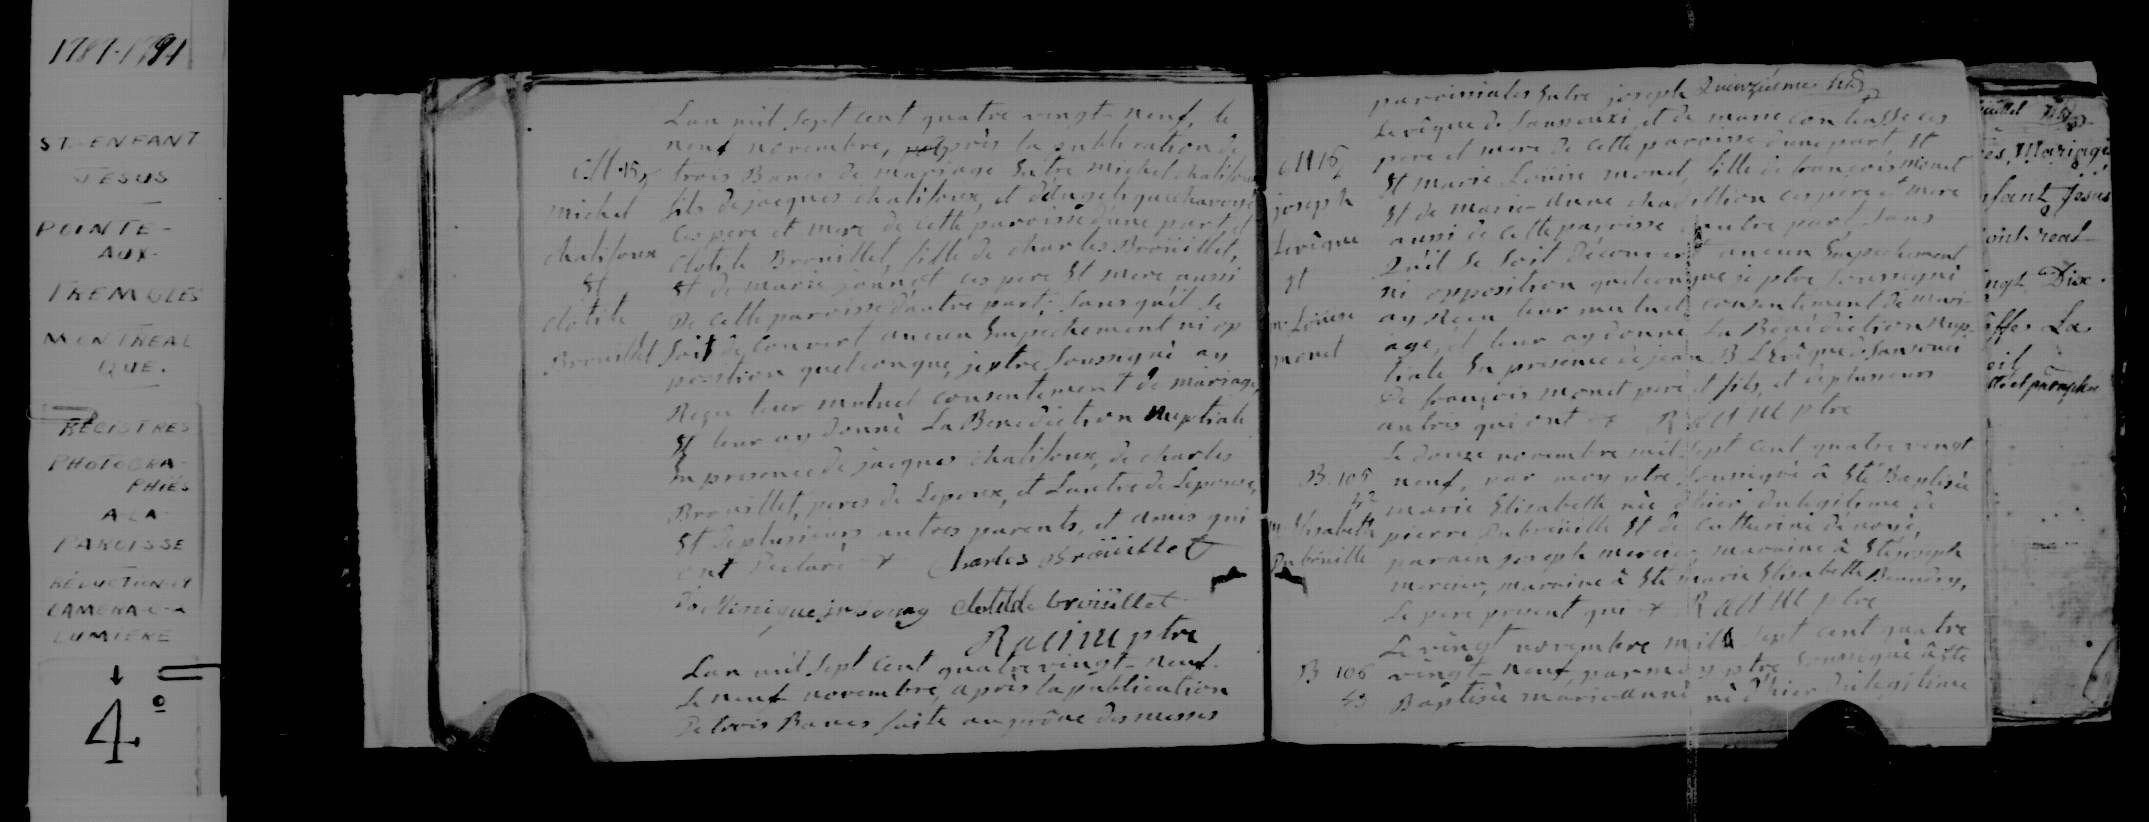 1789-1791
ST-ENFANT
JESUS
POINTE-
AUX-
TREMBLES
MONTREAL
QUE.
REGISTRES
PHOTOGRA-
PHIÉS
A LA
PAROISSE
RÉDUCTION
CAMERA
LUMIERE
4°
M 15
Michel
chalifoux
Et
clotile
Brouillet
L'an mil sept cent quatre vingt-neuf, le
neuf novembre, après la publication de
trois Bancs de mariage Entre michel chalifoux
fils de jacques chalifoux, et d'angelique
Ces pere et mere de cette paroisse d'une part et
clotile Brouillet, fille de charles Brouillet,
Et de marie ces pere Et mere aussi
De cette paroisse d'autre part, sans qu'il se
soit découvert aucun Empechement ni op
position quelconque, je ptre soussigné ay
Reçu leur mutuel consentement de mariage,
Et leur ay donné La Benediction Nuptiale
En presence de jacques chalifoux, de charles
Brouillet, peres de Lepoux, et de Lepouse,
Et de plusieurs autres parents, et amis qui
ont Declaré + Charles Brouillet
Clotilde brouillet
Racine ptre
L'an mil sept cent quatre vingt-neuf
Le neuf novembre, après la publication
De trois Bancs faite au prône des messes
Quinzième
M 16
joseph
Levêque
Et
m Louise
monet
paroissiales Entre joseph
Levêque de sansouci, et de marie ces
pere et mere de cette paroisse d'une part Et
Et marie Louise monet, fille de françois monet
Et de marie-anne ces pere et mere
aussi de cette paroisse d'autre part, sans
Qu'il se soit Découvert aucun Empechement
ni opposition quelconque je ptre soussigné
ay Reçu leur mutuel consentement de mari-
age, et leur ay donné La Benediction Nup-
tiale En presence de jean B Lévêque de Sansouci
De françois monet pere et fils, et de plusieurs
autres qui ont + Racine ptre
B 105
42
m Elisabeth
Dubreuille
Le douze novembre mil sept cent quatre vingt
neuf, par moy ptre soussigné à Eté Baptisée
marie Elisabeth née d'hier du legitime de
pierre Dubreuille Et de Catherine
parain joseph mercier
mercier, maraine à Eté marie Elisabeth Beaudry,
Le pere present qui + Racine ptre
B 106
43
Le vingt novembre mil sept cent quatre
vingt-neuf par moy ptre soussigné à Eté
Baptisée marie-anne né d'hier du legitime
juillet
Mariage
Enfant Jésus
ont real
vingt Dix
La
et paraphé